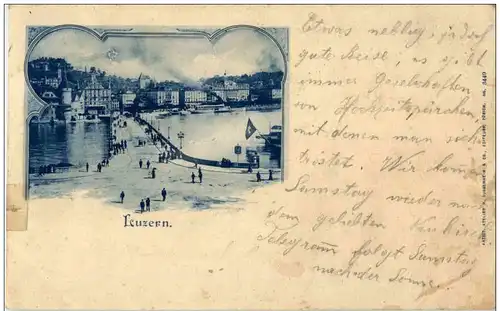 Etwas neblig, ja darf
gute Reise, es gibt
immer Gesellschaften
von Hochzeitspärchen
mit denen man sich
tröstet. Wir kommen
Samstag wieder nach
dem geliebten
Telegramm folgt Samstag
nach der Sonne.
Luzern.